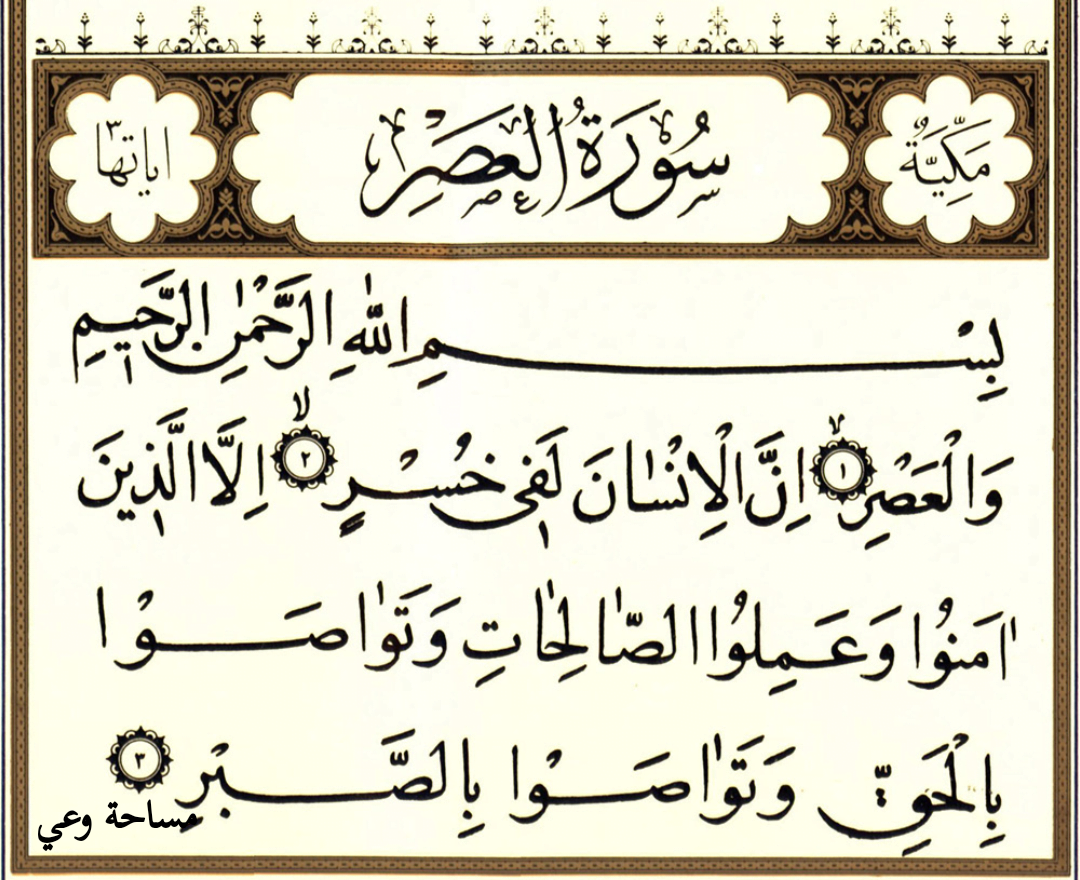 مَكِّيَّةٌ
سُورَةُ الْعَصْرِ
اياتها ٣
بِسْمِ اللّٰهِ الرَّحْمٰنِ الرَّحٖيمِ
وَالْعَصْرِ ١ اِنَّ الْاِنْسَانَ لَفٖى خُسْرٍ ٢ اِلَّا الَّذٖينَ
اٰمَنُوا وَعَمِلُوا الصَّالِحَاتِ وَتَوَاصَوْا
بِالْحَقِّ وَتَوَاصَوْا بِالصَّبْرِ ٣
مساحة وعي